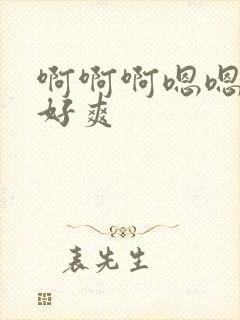 啊啊啊嗯嗯
好爽
表先生